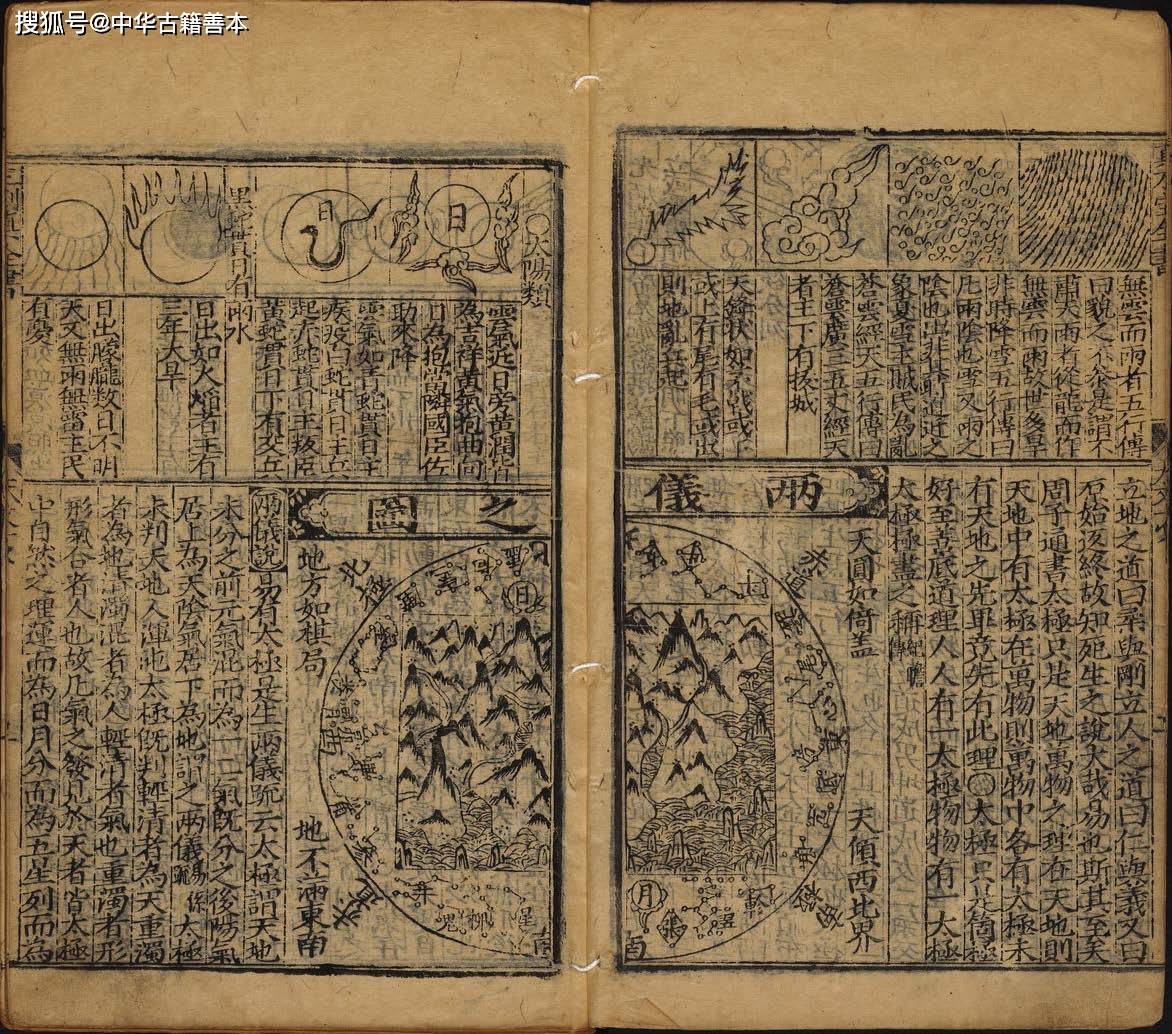 搜狐号@中华古籍善本
無雲而雨者五行傳
曰貌之不恭是謂不
肅大雨者從龍而作
無雲而雨故世多旱
非時降雪五行傳曰
凡雨陰也雪又雨之
陰也出非其時迫近之
象夏雪主賊民為亂
蒼雲經天五行傳曰
蒼雲廣三五丈經天
者主下有拔城
天鋒狀如矛戟或下
或上有尾有毛或出
則地亂兵起
立地之道曰柔與剛立人之道曰仁與義又曰
原始返終故知死生之說大哉易也斯其至矣
周子通書太極只是天地萬物之理在天地則
天地中有太極在萬物則萬物中各有太極未
有天地之先畢竟先有此理○太極只是箇極
好至善底道理人人有一太極物物有一太極
太極極盡之稱
兩儀
天圓如倚盖
天傾西北界
月
之圖
地方如棋局
地不滿東南
日
太陽類
日
日
黑蛇貫日有雨水
雲氣近日旁黃潤皆
為吉祥黃氣抱曲向
日為抱當隣國臣佐
助來降
雲氣如青蛇貫日主
疾疫白蛇貫日主兵
起赤蛇貫日主叛臣
黃蛇貫日下有交兵
日出如火焰者主有
三年大旱
日出朦朧数日不明
天又無雨無雷主民
有憂
兩儀說
易有太極是生兩儀疏云太極謂天地
未分之前元氣混而為一二氣既分之後陽氣
居上為天陰氣居下為地謂之兩儀易係太極
未判天地人渾沌太極既判輕清者為天重濁
者為地清濁混者為人輕清者氣也重濁者形
形氣合者人也故凡氣之發見於天者皆太極
中自然之理運而為日月分而為五星列而為